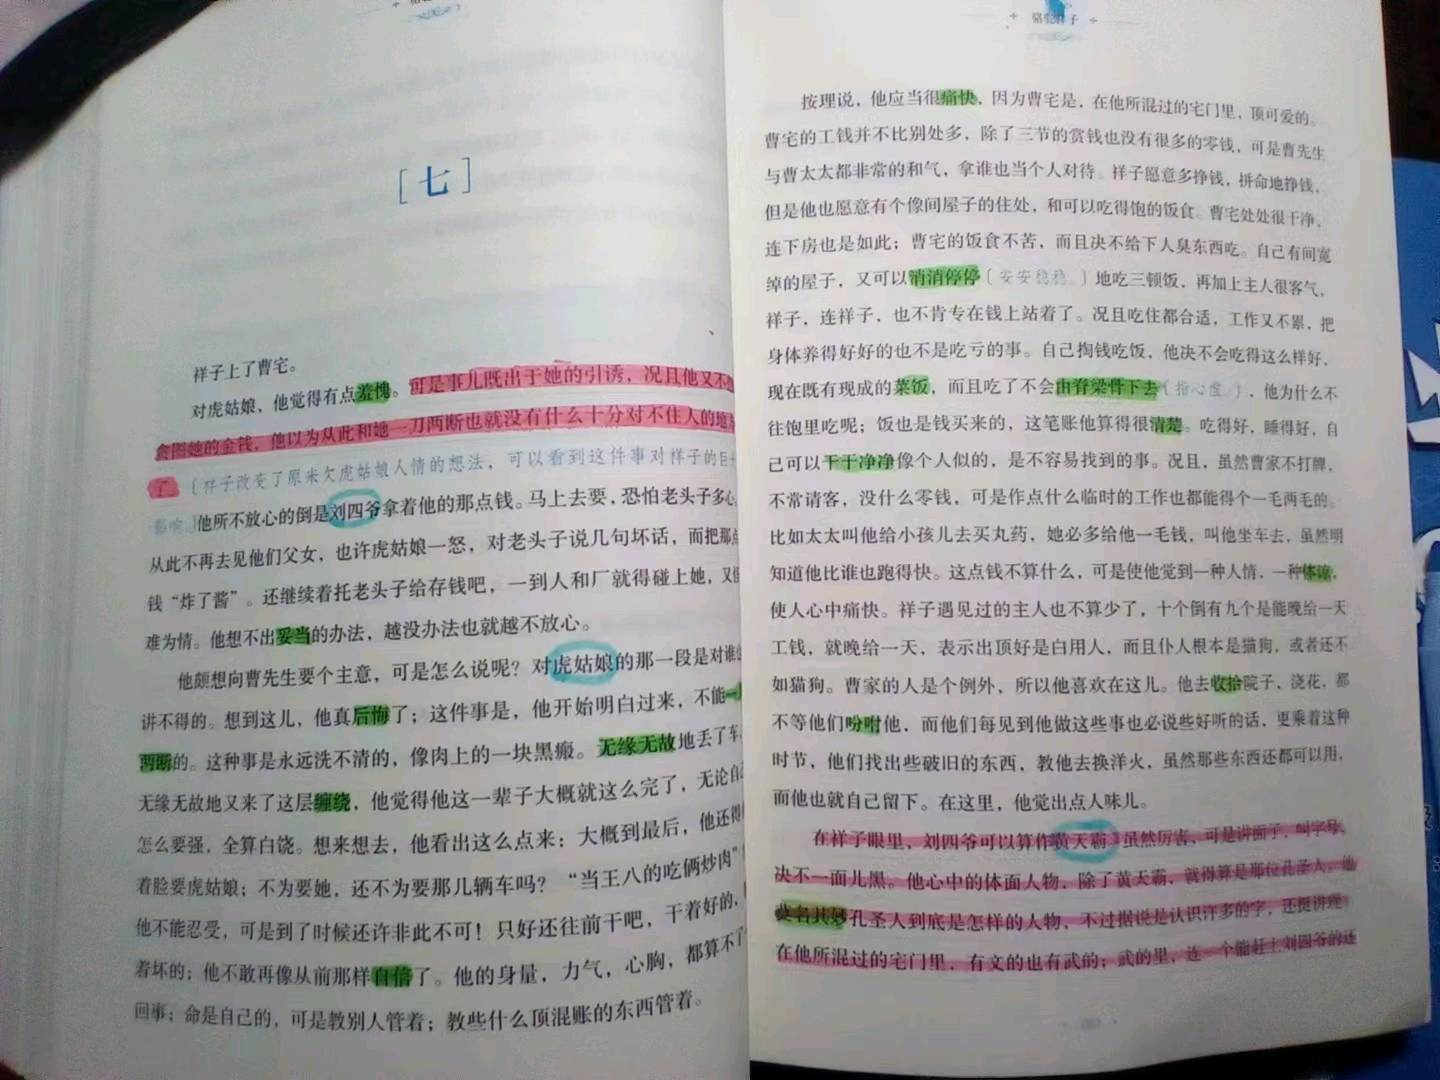 骆驼祥子
[七]
祥子上了曹宅。
对虎姑娘，他觉得有点羞愧。可是事儿既出于她的引诱，况且他又不想
贪图她的金钱，他以为从此和她一刀两断也就没有什么十分对不住人的地方
了〔祥子改变了原来欠虎姑娘人情的想法，可以看到这件事对祥子的巨大
影响〕他所不放心的倒是刘四爷拿着他的那点钱。马上去要，恐怕老头子多心。
从此不再去见他们父女，也许虎姑娘一怒，对老头子说几句坏话，而把那点
钱“炸了酱”。还继续着托老头子给存钱吧，一到人和厂就得碰上她，又怪
难为情。他想不出妥当的办法，越没办法也就越不放心。
他颇想向曹先生要个主意，可是怎么说呢？对虎姑娘的那一段是对谁也
讲不得的。想到这儿，他真后悔了；这件事是，他开始明白过来，不能一刀
两断的。这种事是永远洗不清的，像肉上的一块黑瘢。无缘无故地丢了车，
无缘无故地又来了这层缠绕，他觉得他这一辈子大概就这么完了，无论自己
怎么要强，全算白饶。想来想去，他看出这么点来：大概到最后，他还得
着脸要虎姑娘；不为要她，还不为要那几辆车吗？“当王八的吃俩炒肉”
他不能忍受，可是到了时候还许非此不可！只好还往前干吧，干着好的，
着坏的；他不敢再像从前那样自信了。他的身量，力气，心胸，都算不了
回事；命是自己的，可是教别人管着；教些什么顶混账的东西管着。
骆驼祥子
按理说，他应当很痛快，因为曹宅是，在他所混过的宅门里，顶可爱的。
曹宅的工钱并不比别处多，除了三节的赏钱也没有很多的零钱，可是曹先生
与曹太太都非常的和气，拿谁也当个人对待。祥子愿意多挣钱，拼命地挣钱，
但是他也愿意有个像间屋子的住处，和可以吃得饱的饭食。曹宅处处很干净，
连下房也是如此；曹宅的饭食不苦，而且决不给下人臭东西吃。自己有间宽
绰的屋子，又可以消消停停〔安安稳稳。〕地吃三顿饭，再加上主人很客气，
祥子，连祥子，也不肯专在钱上站着了。况且吃住都合适，工作又不累，把
身体养得好好的也不是吃亏的事。自己掏钱吃饭，他决不会吃得这么样好，
现在既有现成的菜饭，而且吃了不会由脊梁骨下去〔指心虚〕，他为什么不
往饱里吃呢；饭也是钱买来的，这笔账他算得很清楚。吃得好，睡得好，自
己可以干干净净像个人似的，是不容易找到的事。况且，虽然曹家不打牌，
不常请客，没什么零钱，可是作点什么临时的工作也都能得个一毛两毛的。
比如太太叫他给小孩儿去买丸药，她必多给他一毛钱，叫他坐车去，虽然明
知道他比谁也跑得快。这点钱不算什么，可是使他觉到一种人情，一种体谅，
使人心中痛快。祥子遇见过的主人也不算少了，十个倒有九个是能晚给一天
工钱，就晚给一天，表示出顶好是白用人，而且仆人根本是猫狗，或者还不
如猫狗。曹家的人是个例外，所以他喜欢在这儿。他去收拾院子，浇花，都
不等他们吩咐他，而他们每见到他做这些事也必说些好听的话，更乘着这种
时节，他们找出些破旧的东西，教他去换洋火，虽然那些东西还都可以用，
而他也就自己留下。在这里，他觉出点人味儿。
在祥子眼里，刘四爷可以算作黄天霸。虽然厉害，可是讲面子，叫字号，
决不一面儿黑。他心中的体面人物，除了黄天霸，就得算是那位孔圣人，他
莫名其妙孔圣人到底是怎样的人物，不过据说是认识许多的字，还挺讲理。
在他所混过的宅门里，有文的也有武的；武的里，连一个能赶上刘四爷的还